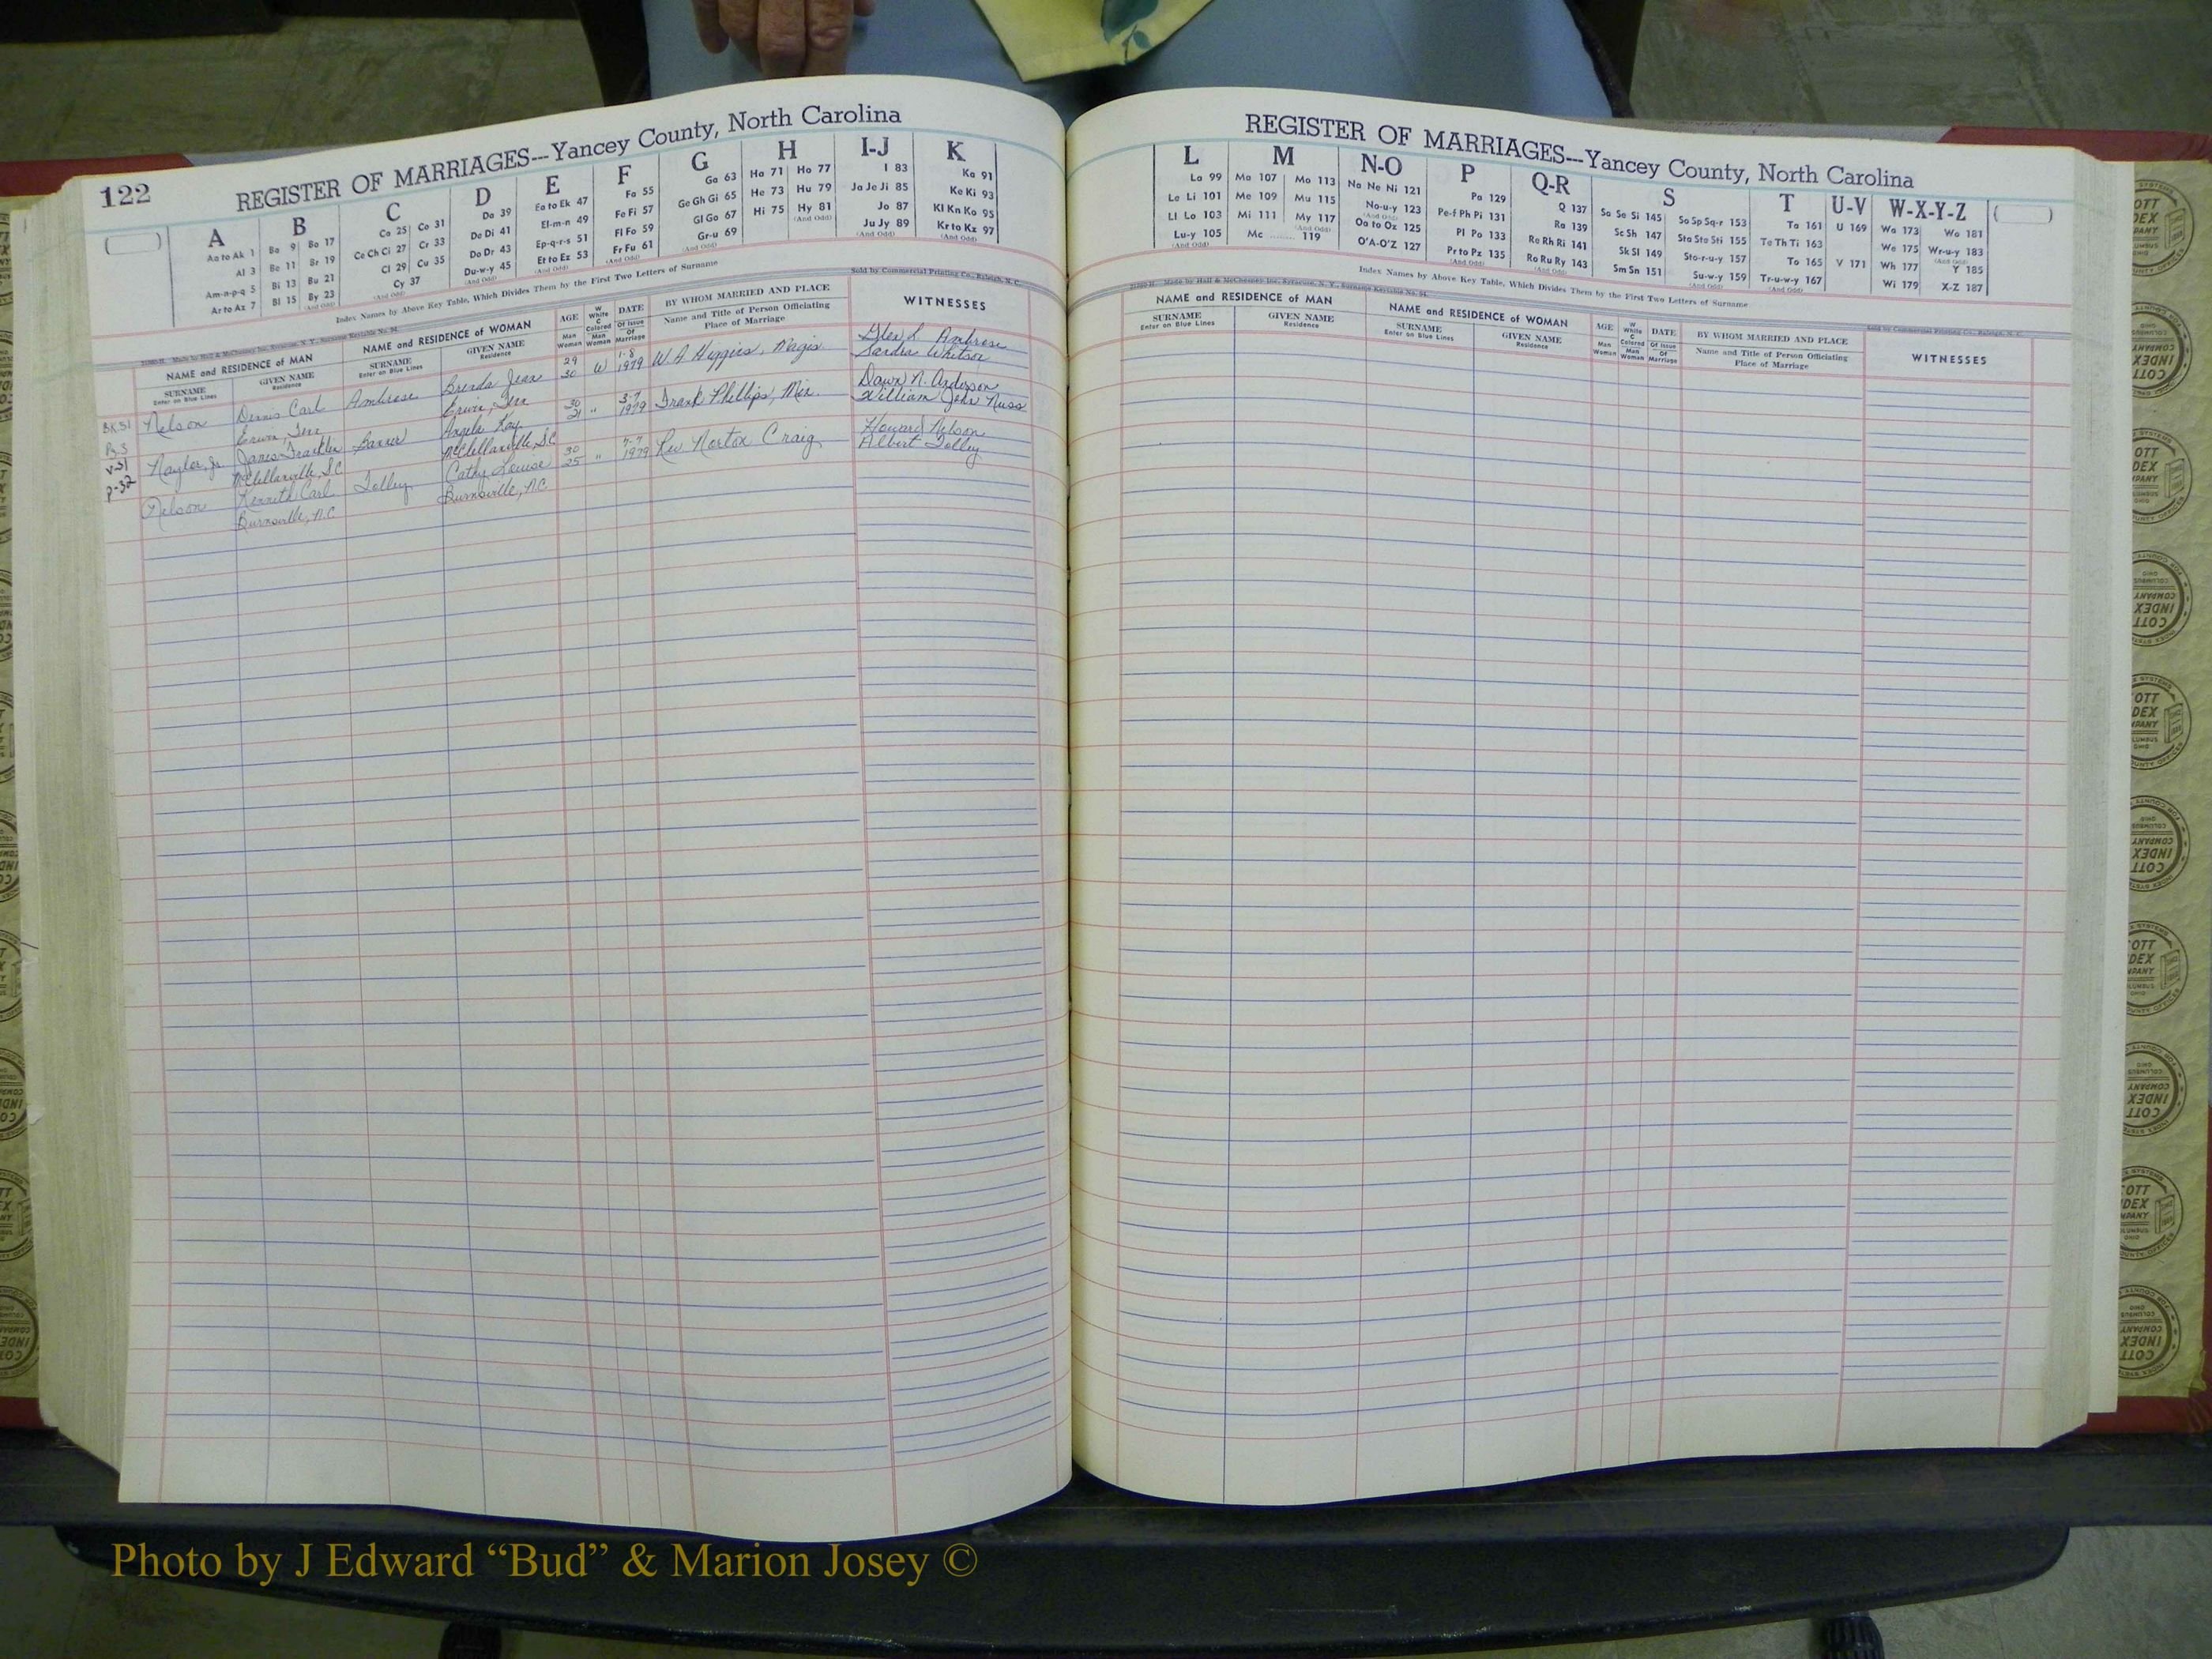 122
REGISTER OF MARRIAGES---Yancey County, North Carolina
A
Aa to Ak 1
Al 3
Am-n-p-q 5
Ar to Az 7
B
Ba 9 Bo 17
Be 11 Br 19
Bi 13 Bu 21
Bl 15 By 23
(And Odd)
C
Ca 25 Co 31
Ce Ch Ci 27 Cr 33
Cl 29 Cu 35
(And Odd) Cy 37
D
Da 39
De Di 41
Do Dr 43
Du-w-y 45
(And Odd)
E
Ea to Ek 47
El-m-n 49
Ep-q-r-s 51
(And Odd)
Et to Ez 53
F
Fa 55
Fe Fi 57
Fl Fo 59
Fr Fu 61
(And Odd)
G
Ga 63
Ge Gh Gi 65
Gl Go 67
Gr-u 69
(And Odd)
H
Ha 71 Ho 77
He 73 Hu 79
Hi 75 Hy 81
(And Odd)
I-J
I 83
Ja Je Ji 85
Jo 87
Ju Jy 89
(And Odd)
K
Ka 91
Ke Ki 93
Kl Kn Ko 95
Kr to Kz 97
(And Odd)
Index Names by Above Key Table, Which Divides Them by the First Two Letters of Surname
Sold by Commercial Printing Co., Raleigh, N. C.
NAME and RESIDENCE of MAN
SURNAME
Enter on Blue Lines
GIVEN NAME
Residence
NAME and RESIDENCE of WOMAN
SURNAME
Enter on Blue Lines
GIVEN NAME
Residence
AGE
Man
Woman
W
White
C
Colored
Man
Woman
DATE
Of Issue
Of
Marriage
BY WHOM MARRIED AND PLACE
Name and Title of Person Officiating
Place of Marriage
WITNESSES
BK51 Nelson Dennis Carl Ambrose Brenda Jean 29 W 1-8 W. A. Higgins, Magis. Glen L Ambrose
Pg 5 Erwin, Tenn Erwin, Tenn 30 1979 Sandra Whitson
V-51 Naylor, Jr. James Franklin Angela Kay 30 " 3-7 Frank Phillips, Min. Dawn N. Anderson
P-32 McClellanville, S.C McClellanville, S.C 21 1979 William John Nuss
Nelson Kenneth Carl Tolley Cathy Louise 30 " 1979 Rev Norton Craig Howard Nelson
Burnsville, N.C Burnsville, N.C. 25 Albert Tolley
REGISTER OF MARRIAGES---Yancey County, North Carolina
L
La 99
Le Li 101
Ll Lo 103
Lu-y 105
(And Odd)
M
Ma 107 Mo 113
Me 109 Mu 115
Mi 111 My 117
Mc ........ 119
N-O
Na Ne Ni 121
No-u-y 123
(And Odd)
Oa to Oz 125
O'A-O'Z 127
P
Pa 129
Pe-f Ph Pi 131
Pl Po 133
Pr to Pz 135
(And Odd)
Q-R
Q 137
Ra 139
Re Rh Ri 141
Ro Ru Ry 143
(And Odd)
S
Sa Se Si 145 So Sp Sq-r 153
Sc Sh 147 Sta Ste Sti 155
Sk Sl 149 Sto-r-u-y 157
Sm Sn 151 Su-w-y 159
(And Odd)
T
Ta 161
Te Th Ti 163
To 165
Tr-u-w-y 167
(And Odd)
U-V
U 169
V 171
W-X-Y-Z
Wa 173 Wo 181
We 175 Wr-u-y 183
(And Odd)
Wh 177 Y 185
Wi 179 X-Z 187
Index Names by Above Key Table, Which Divides Them by the First Two Letters of Surname
Sold by Commercial Printing Co., Raleigh, N. C.
NAME and RESIDENCE of MAN
SURNAME
Enter on Blue Lines
GIVEN NAME
Residence
NAME and RESIDENCE of WOMAN
SURNAME
Enter on Blue Lines
GIVEN NAME
Residence
AGE
Man
Woman
W
White
C
Colored
Man
Woman
DATE
Of Issue
Of
Marriage
BY WHOM MARRIED AND PLACE
Name and Title of Person Officiating
Place of Marriage
WITNESSES
Photo by J Edward “Bud” & Marion Josey ©